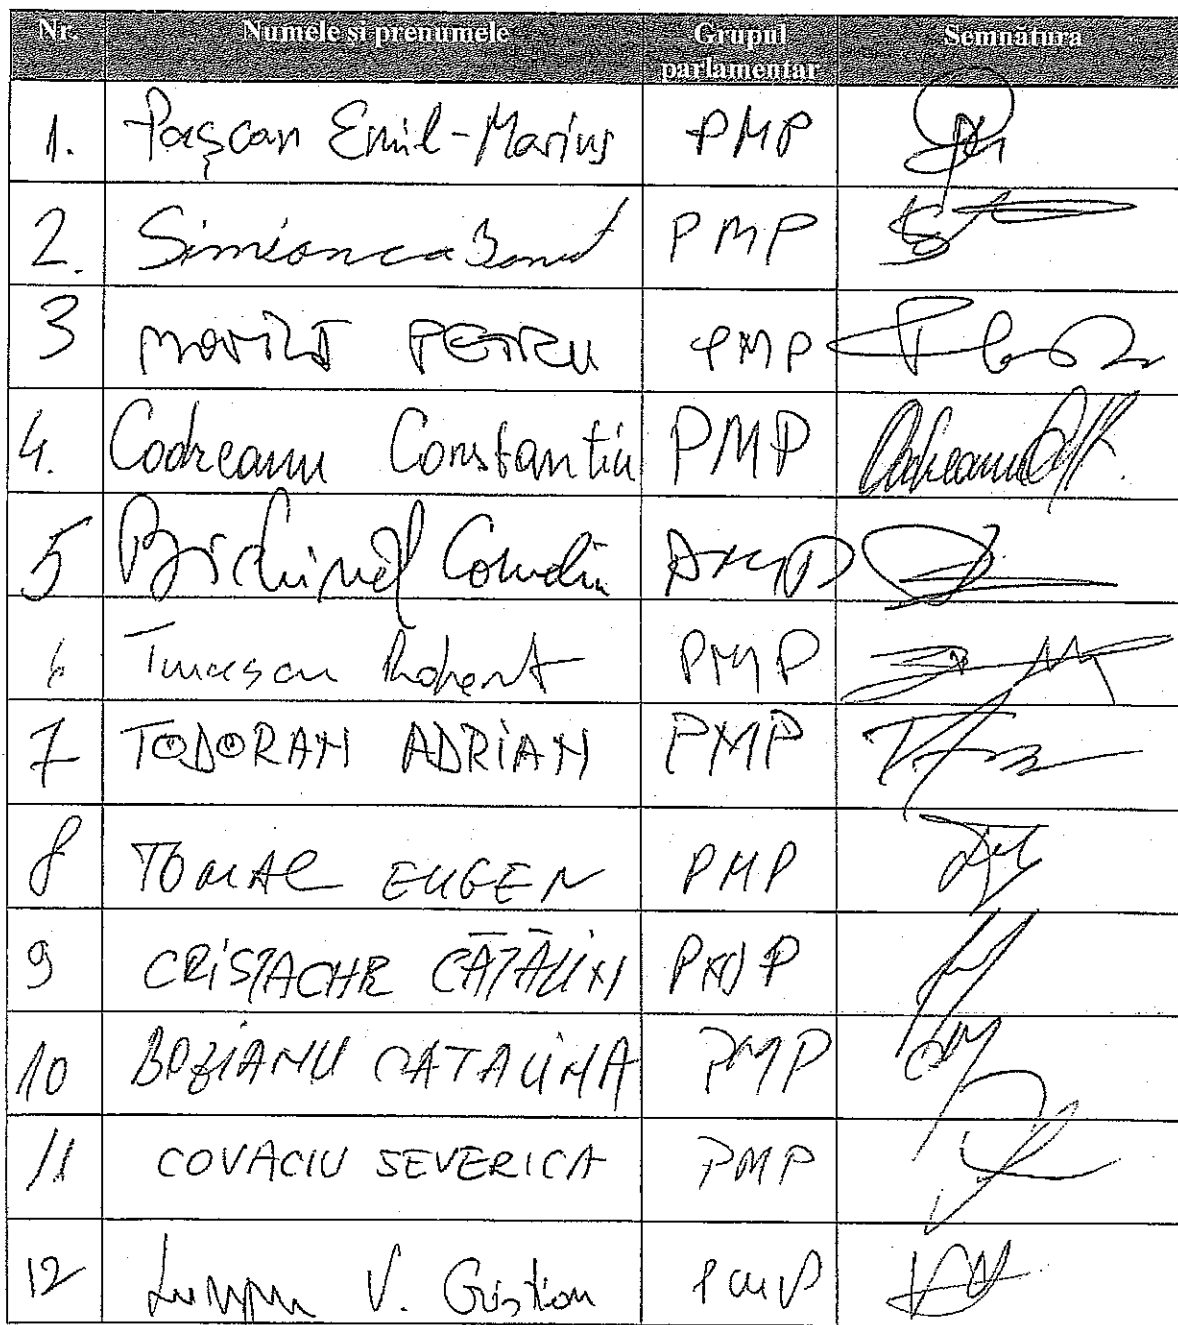 Nr. Numele și prenumele Grupul parlamentar Semnătura
1. Pașcan Emil-Marius PMP
2. Simionca Ionuț PMP
3 MOVILĂ PETRU PMP
4. Codreanu Constantin PMP Codreanu
5 Bichineț Corneliu PMP
6 Turcescu Robert PMP
7 TODORAN ADRIAN PMP
8 TOMAC EUGEN PMP
9 CRISTACHE CĂTĂLIN PMP
10 BOZIANU CATALINA PMP
11 COVACIU SEVERICA PMP
12 Lungu V. Cristian PMP